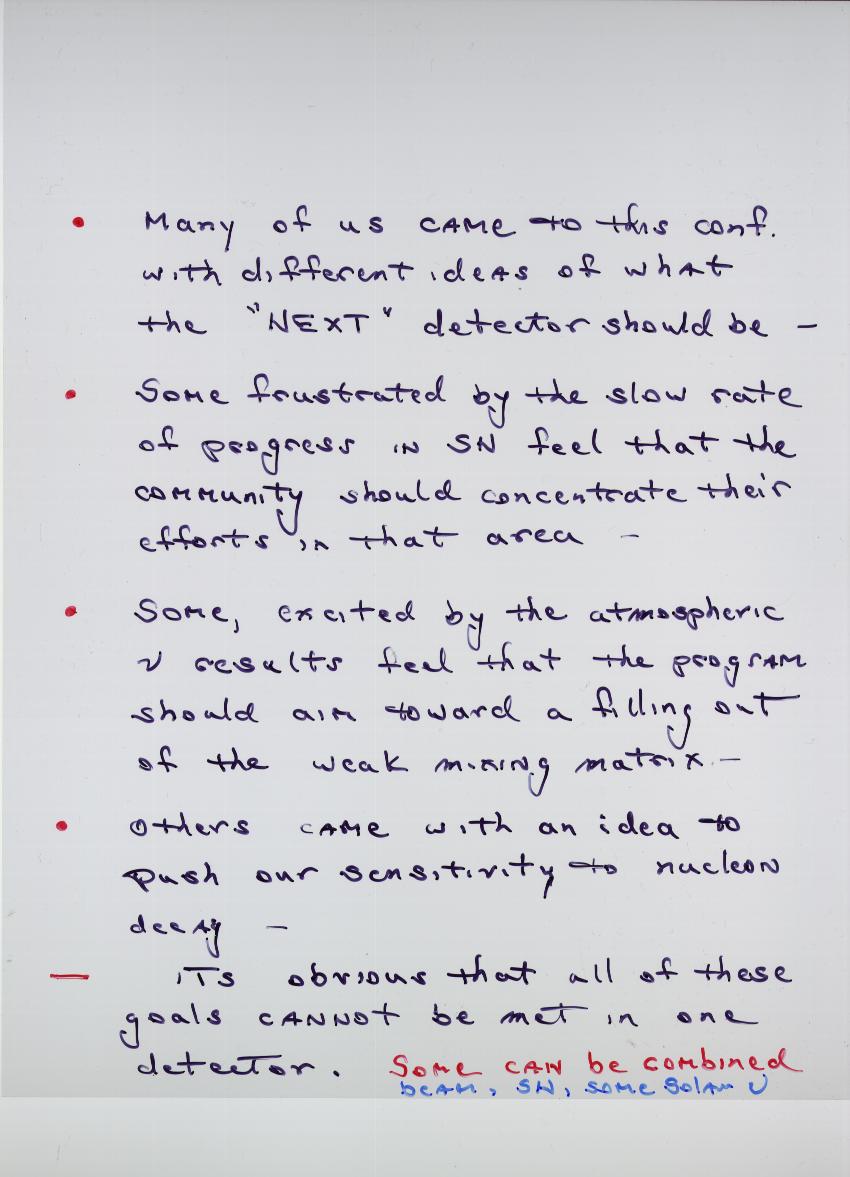 • Many of us CAME to this conf.
with different ideas of what
the "NEXT" detector should be –
• Some frustrated by the slow rate
of progress IN SN feel that the
community should concentrate their
efforts in that area –
• Some, excited by the atmospheric
ν results feel that the program
should aim toward a filling out
of the weak mixing matrix. –
• Others CAME with an idea to
push our sensitivity to nucleon
decay –
— ITs obvious that all of these
goals CANNOT be met in one
detector. Some CAN be combined
beam, SN, some Solar ν